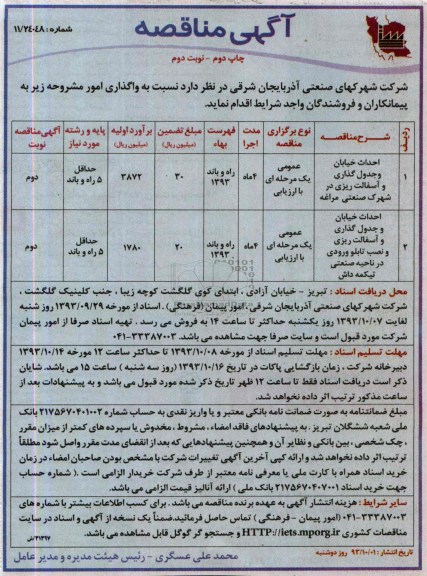 آگهی مناقصه
شماره: ۱۱/۲۴۰۴۸
چاپ دوم - نوبت دوم
شرکت شهرکهای صنعتی آذربایجان شرقی در نظر دارد نسبت به واگذاری امور مشروحه زیر به
پیمانکاران و فروشندگان واجد شرایط اقدام نماید.
ردیف | شرح مناقصه | نوع برگزاری مناقصه | مدت اجرا | فهرست بهاء | مبلغ تضمین (میلیون ریال) | برآورد اولیه (میلیون ریال) | پایه و رشته مورد نیاز | آگهی مناقصه نوبت
۱ | احداث خیابان وجدول گذاری و آسفالت ریزی در شهرک صنعتی مراغه | عمومی یک مرحله ای با ارزیابی | ۴ماه | راه و باند ۱۳۹۳ | ۳۰ | ۳۸۷۲ | حداقل ۵ راه و باند | دوم
۲ | احداث خیابان و جدول گذاری و آسفالت ریزی و نصب تابلو ورودی در ناحیه صنعتی تیکمه داش | عمومی یک مرحله ای با ارزیابی | ۴ماه | راه و باند ۱۳۹۳ | ۲۰ | ۱۷۸۰ | حداقل ۵ راه و باند | دوم
محل دریافت اسناد : تبریز - خیابان آزادی ، ابتدای کوی گلگشت کوچه زیبا ، جنب کلینیک گلگشت ،
شرکت شهرکهای صنعتی آذربایجان شرقی، امور پیمان (فرهنگی) . اسناد از مورخه ۱۳۹۳/۰۹/۲۹ روز شنبه
لغایت ۱۳۹۳/۱۰/۰۷ روز یکشنبه حداکثر تا ساعت ۱۴ به فروش می رسد . تهیه اسناد صرفا از امور پیمان
شرکت مورد قبول است و سایت صرفا جهت مشاهده می باشد. ۳۳۳۸۷۰۰۳-۰۴۱
مهلت تسلیم اسناد : مهلت تسلیم اسناد از مورخه ۱۳۹۳/۱۰/۰۸ تا حداکثر ساعت ۱۲ مورخه ۱۳۹۳/۱۰/۱۴
دبیرخانه شرکت ، زمان بازگشایی پاکات در تاریخ ۱۳۹۳/۱۰/۱۶ (روز سه شنبه ) ساعت ۱۵ می باشد. شایان
ذکر است دریافت اسناد فقط تا ساعت ۱۲ ظهر تاریخ ذکر شده مورد قبول میباشد و به پیشنهادات بعد از
ساعت مذکور ترتیب اثر داده نخواهد شد.
مبلغ ضمانتنامه به صورت ضمانت نامه بانکی معتبر و یا واریز نقدی به حساب شماره ۲۱۷۵۶۷۰۴۰۱۰۰۲ بانک
ملی شعبه ششگلان تبریز . به پیشنهادهای فاقد امضاء ، مشروط ، مخدوش یا سپرده های کمتر از میزان مقرر
، چک شخصی ، بین بانکی و نظایر آن و همچنین پیشنهادهایی که بعد از انقضای مدت مقرر واصل شود مطلقاً
ترتیب اثر داده نخواهد شد و ارائه کپی آخرین آگهی تغییرات شرکت با مشخص بودن صاحبان امضاء در زمان
خرید اسناد همراه با کارت ملی یا معرفی نامه معتبر از طرف شرکت خریدار الزامی است .( شماره حساب
جهت خرید اسناد ۲۱۷۵۶۷۰۴۰۷۰۰۱ بانک ملی ) ارائه آنالیز قیمت الزامی می باشد.
سایر شرایط : هزینه انتشار آگهی به عهده برنده مناقصه می باشد . برای کسب اطلاعات بیشتر با شماره های
۳۳۳۸۷۰۰۳-۰۴۱ (امور پیمان - فرهنگی ) تماس حاصل فرمائید.ضمناً یک نسخه از آگهی و اسناد در سایت
مناقصات کشوری HTTP://iets.mporg.ir و جستجو گر گوگل قابل مشاهده می باشد.
تاریخ انتشار: ۹۳/۱۰/۰۱ روز دوشنبه
محمد علی عسگری - رئیس هیئت مدیره و مدیر عامل